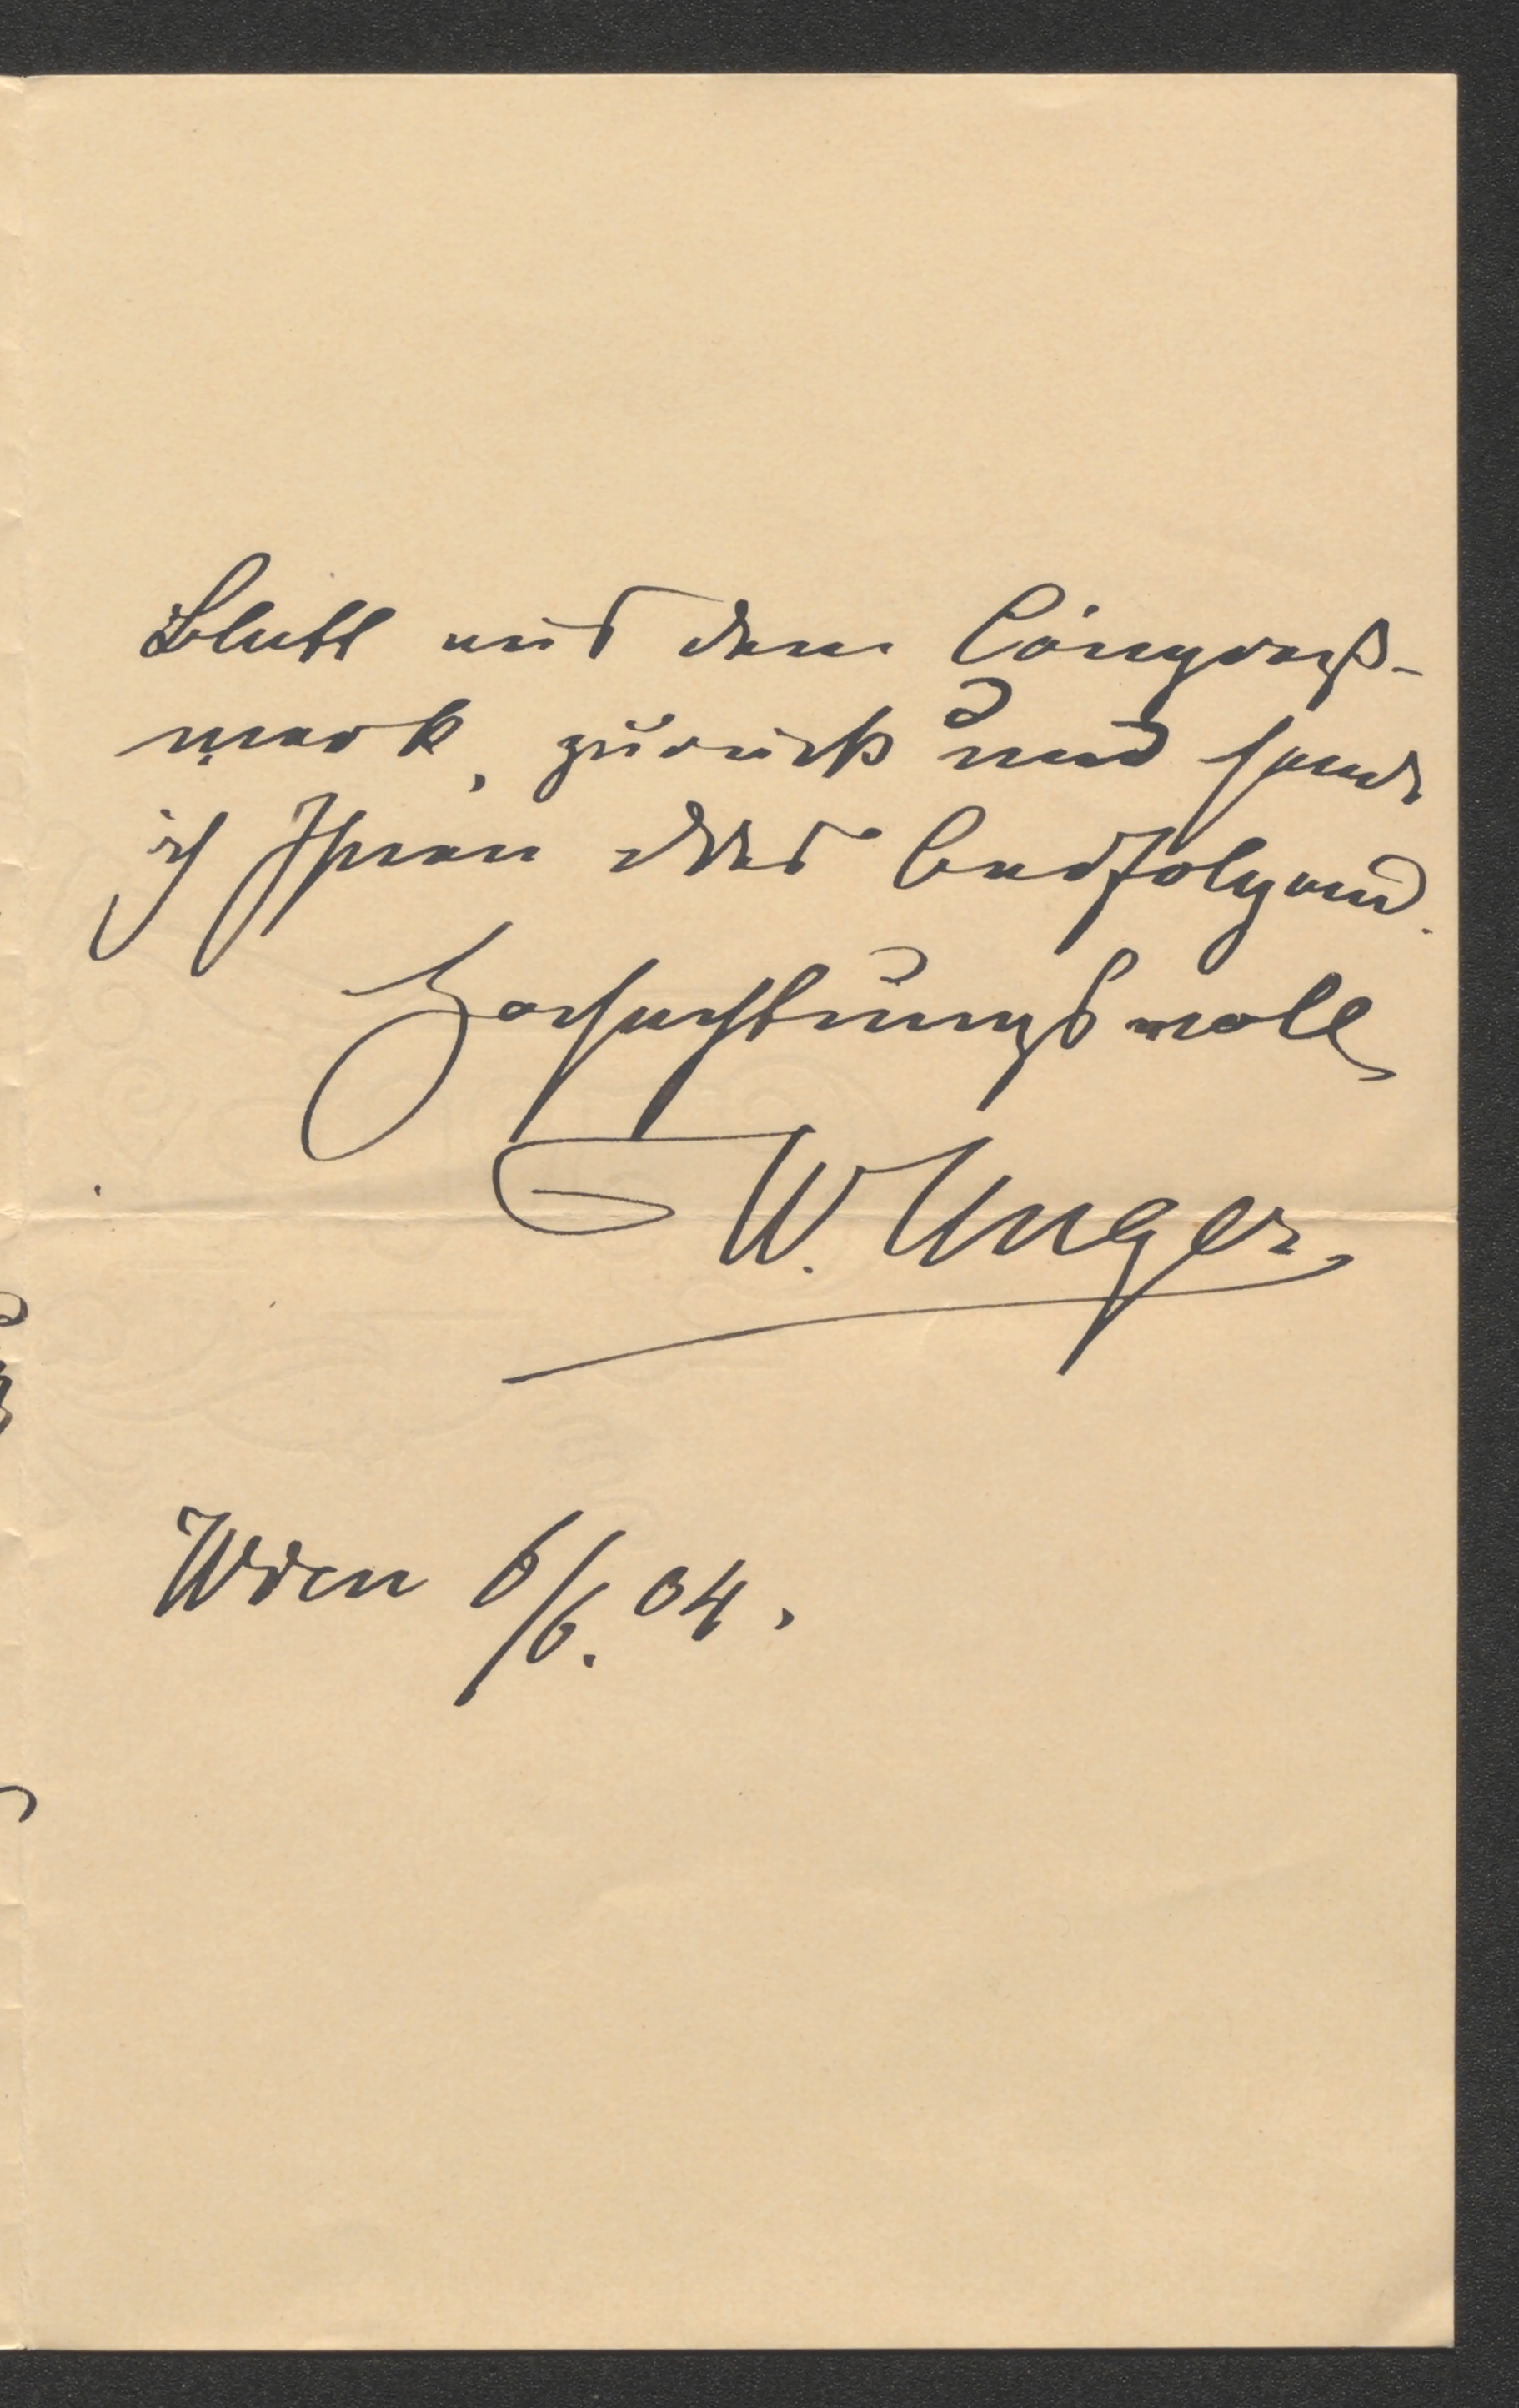 Blatt mit dem Congress-
mark, zurück und sende
ich Ihnen dies beifolgend.
Hochachtungsvoll
W. Unger
Wien 6/6. 04.